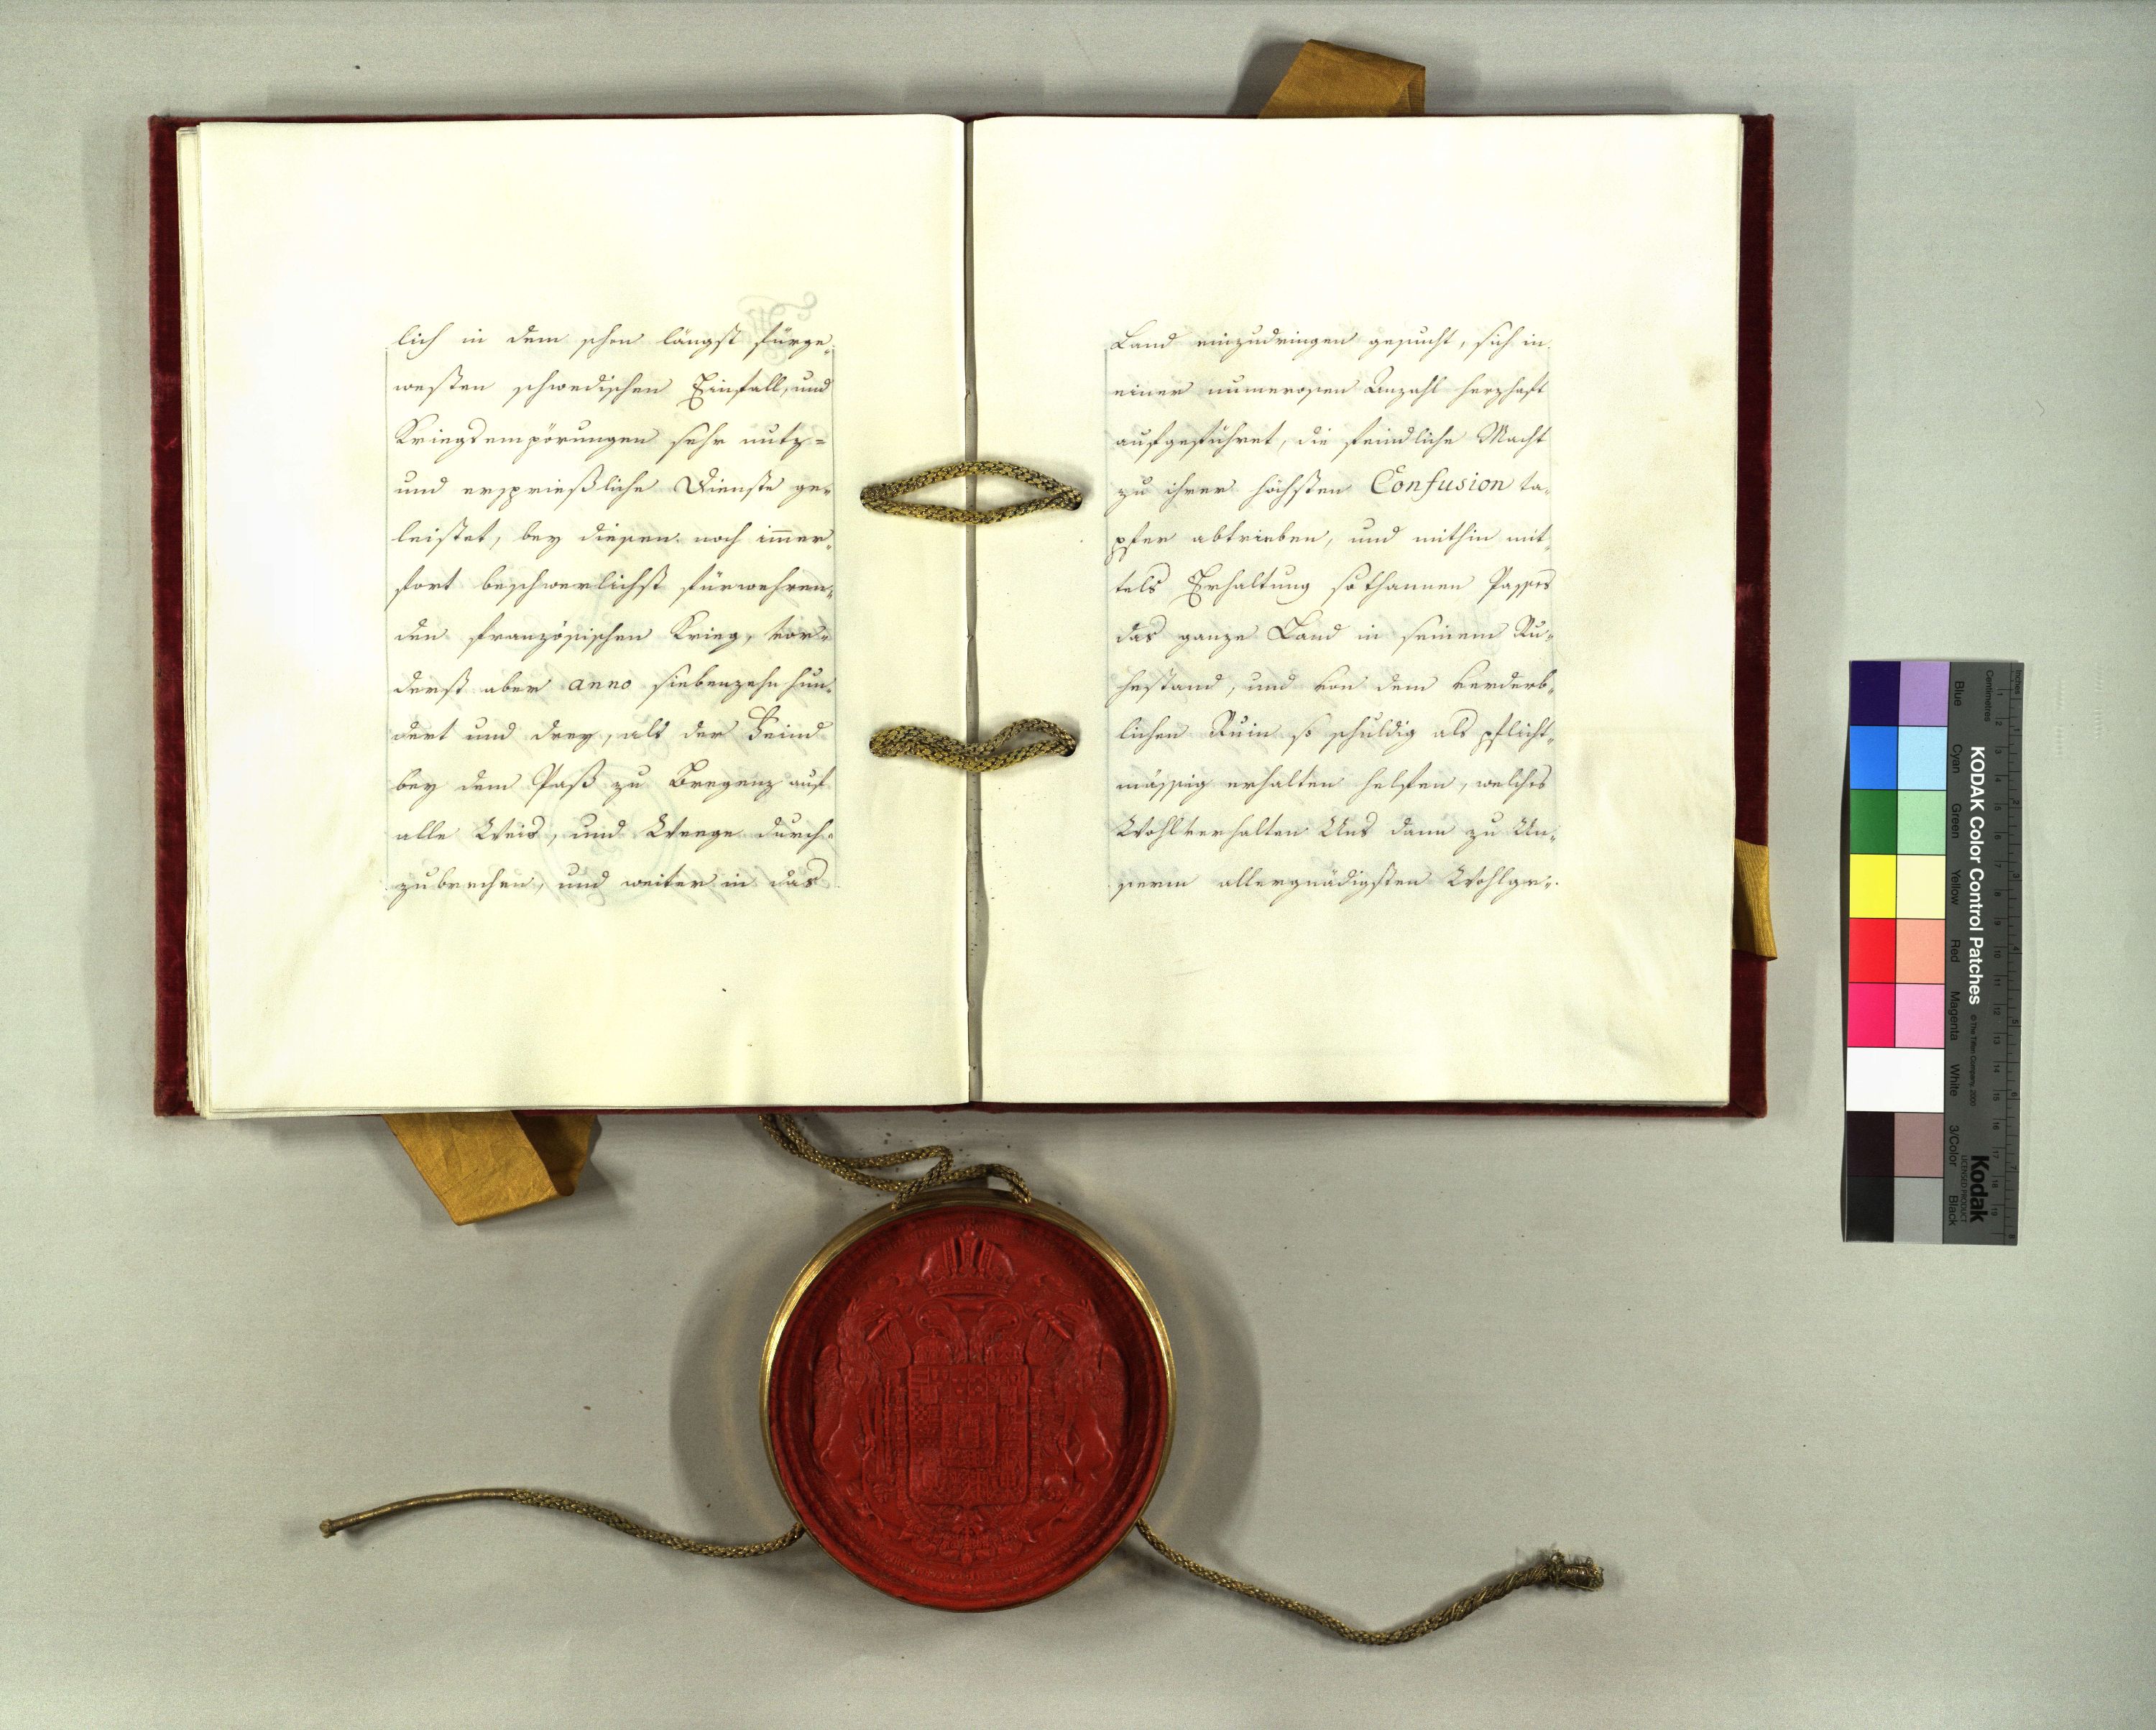 lich in dem schon längst fürge-
westen schwedischen Einfall, und
Kriegsempörungen sehr nutz=
und ersprießliche Dienste ge-
leistet, bey diesen noch im̅er-
fort beschwerlichst fürwehren-
den französischen Krieg, vor-
derst aber anno siebenzehn hun-
dert und drey, als der Feind
bey dem Paß zu Bregenz auf
alle Weis, und Weege durch-
zubrechen, und weiter in das
Land einzudringen gesucht, sich in
einer numerosen Anzahl herzhaft
aufgeführet, die feindliche Macht
zu ihrer höchsten Confusion ta-
pfer abtrieben, und mithin mit-
tels Erhaltung sothannen Passes
das ganze Land in seinem Ru-
hestand, und von dem verderb-
lichen Ruin so schuldig als pflicht-
mässig erhalten helfen, welches
Wohlverhalten Uns dann zu Un-
serm allergnädigsten Wohlge-
KODAK Color Control Patches
© The Tiffen Company, 2000
Kodak
LICENSED PRODUCT
Inches
Centimetres
Blue
Cyan
Green
Yellow
Red
Magenta
White
3/Color
Black